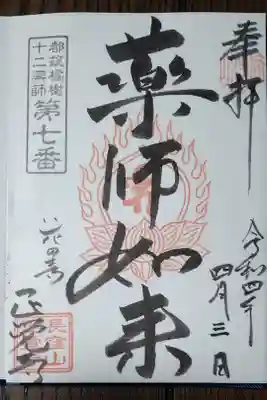 奉拝
令和四年
四月三日
薬師如来
都筑橘樹
十二薬師
第七番
花の寺
正覚寺
長窪山